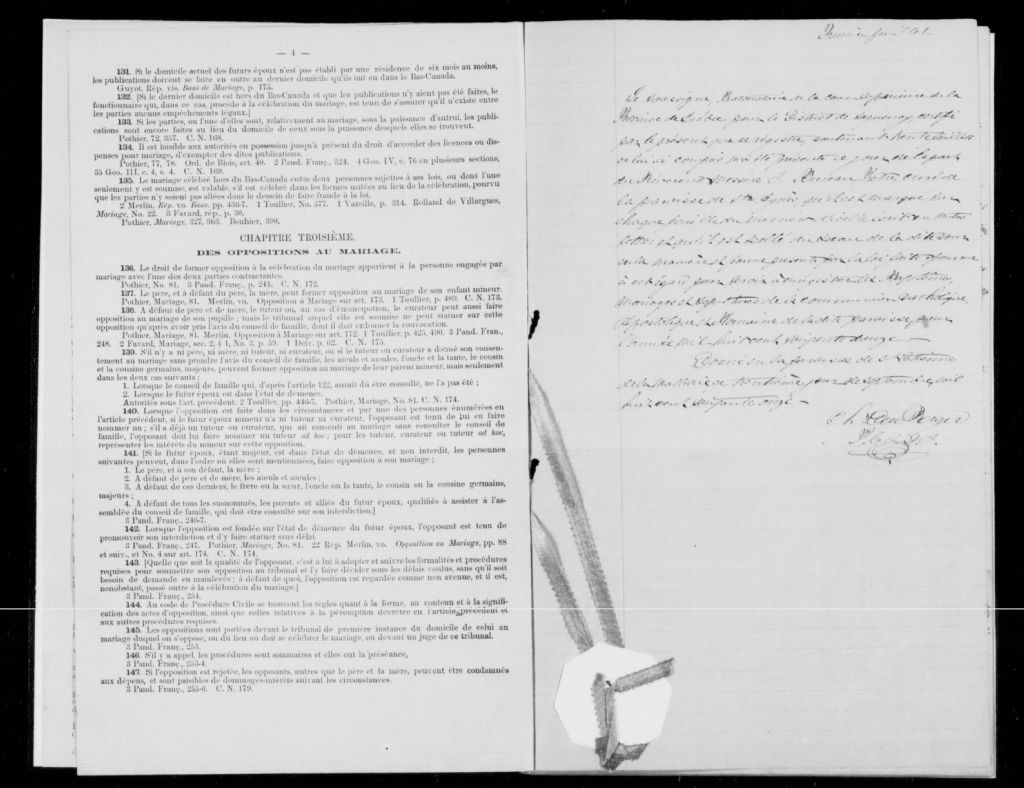 — 4 —
131. Si le domicile actuel des futurs époux n'est pas établi par une résidence de six mois au moins,
les publications doivent se faire en outre au dernier domicile qu'ils ont eu dans le Bas-Canada.
Guyot, Rép. vis. Bans de Mariage, p. 175.
132. [Si le dernier domicile est hors du Bas-Canada et que les publications n'y aient pas été faites, le
fonctionnaire qui, dans ce cas, procède à la célébration du mariage, est tenu de s'assurer qu'il n'existe entre
les parties aucuns empêchements légaux.]
133. Si les parties, ou l'une d'elles sont, relativement au mariage, sous la puissance d'autrui, les publi-
cations sont encore faites au lieu du domicile de ceux sous la puissance desquels elles se trouvent.
Pothier, 72, 357. C. N. 168.
134. Il est loisible aux autorités en possession jusqu'à présent du droit d'accorder des licences ou dis-
penses pour mariage, d'exempter des dites publications.
Pothier, 77, 78. Ord. de Blois, art. 40. 2 Pand. Franç., 324. 4 Geo. IV, c. 76 en plusieurs sections,
35 Geo. III, c. 4, s. 4. C. N. 169.
135. Le mariage célébré hors du Bas-Canada entre deux personnes sujettes à ses lois, ou dont l'une
seulement y est soumise, est valable, s'il est célébré dans les formes usitées au lieu de la célébration, pourvu
que les parties n'y soient pas allées dans le dessein de faire fraude à la loi.
2 Merlin, Rép. vo. Bans, pp. 456-7. 1 Toullier, No. 577. 1 Vazeille, p. 314. Rolland de Villargues,
Mariage, No. 22. 3 Favard, rép., p. 30.
Pothier, Mariage, 327, 363. Bouhier, 390.
CHAPITRE TROISIÈME.
DES OPPOSITIONS AU MARIAGE.
136. Le droit de former opposition à la célébration du mariage appartient à la personne engagée par
mariage avec l'une des deux parties contractantes.
Pothier, No. 81. 3 Pand. Franç., p. 241. C. N. 172.
137. Le père, et à défaut du père, la mère, peut former opposition au mariage de son enfant mineur.
Pothier, Mariage, 81. Merlin, vo. Opposition à Mariage sur art. 173. 1 Toullier, p. 489. C. N. 173.
138. A défaut de père et de mère, le tuteur ou, au cas d'émancipation, le curateur peut aussi faire
opposition au mariage de son pupille; mais le tribunal auquel elle est soumise ne peut statuer sur cette
opposition qu'après avoir pris l'avis du conseil de famille, dont il doit ordonner la convocation.
Pothier, Mariage, 81. Merlin, Opposition à Mariage sur art. 172. 1 Toullier, p. 425, 490. 3 Pand. Fran.,
248. 2 Favard, Mariage, sec. 2, § 1, No. 3, p. 59. 1 Delv. p. 62. C. N. 175.
139. S'il n'y a ni père, ni mère, ni tuteur, ni curateur, ou si le tuteur ou curateur a donné son consen-
tement au mariage sans prendre l'avis du conseil de famille, les aïeuls et aïeules, l'oncle et la tante, le cousin
et la cousine germains, majeurs, peuvent former opposition au mariage de leur parent mineur, mais seulement
dans les deux cas suivants :
1. Lorsque le conseil de famille qui, d'après l'article 122, aurait dû être consulté, ne l'a pas été ;
2. Lorsque le futur époux est dans l'état de démence.
Autorités sous l'art. précédent. 2 Toullier, pp. 446-7. Pothier, Mariage, No. 81. C. N. 174.
140. Lorsque l'opposition est faite dans les circonstances et par une des personnes énumérées en
l'article précédent, si le futur époux mineur n'a ni tuteur ni curateur, l'opposant est tenu de lui en faire
nommer un ; s'il a déjà un tuteur ou curateur, qui ait consenti au mariage sans consulter le conseil de
famille, l'opposant doit lui faire nommer un tuteur ad hoc ; pour les tuteur, curateur ou tuteur ad hoc,
représenter les intérêts du mineur sur cette opposition.
141. [Si le futur époux, étant majeur, est dans l'état de démence, et non interdit, les personnes
suivantes peuvent, dans l'ordre où elles sont mentionnées, faire opposition à son mariage ;
1. Le père, et à son défaut, la mère ;
2. A défaut de père et de mère, les aïeuls et aïeules ;
3. A défaut de ces derniers, le frère ou la sœur, l'oncle ou la tante, le cousin ou la cousine germains,
majeurs ;
4. A défaut de tous les susnommés, les parents et alliés du futur époux, qualifiés à assister à l'as-
semblée du conseil de famille, qui doit être consulté sur son interdiction.]
3 Pand. Franç., 246-7.
142. Lorsque l'opposition est fondée sur l'état de démence du futur époux, l'opposant est tenu de
promouvoir son interdiction et d'y faire statuer sans délai.
3 Pand. Franç., 247. Pothier, Mariage, No. 81. 22 Rép. Merlin, vo. Opposition au Mariage, pp. 88
et suiv., et No. 4 sur art. 174. C. N. 174.
143. [Quelle que soit la qualité de l'opposant, c'est à lui à adopter et suivre les formalités et procédures
requises pour soumettre son opposition au tribunal et l'y faire décider sous les délais voulus, sans qu'il soit
besoin de demande en mainlevée ; à défaut de quoi, l'opposition est regardée comme non avenue, et il est,
nonobstant, passé outre à la célébration du mariage.]
3 Pand. Franç., 254.
144. Au code de Procédure Civile se trouvent les règles quant à la forme, au contenu et à la signifi-
cation des actes d'opposition, ainsi que celles relatives à la péremption décrétée en l'article précédent et
aux autres procédures requises.
145. Les oppositions sont portées devant le tribunal de première instance du domicile de celui au
mariage duquel on s'oppose, ou du lieu où doit se célébrer le mariage, ou devant un juge de ce tribunal.
3 Pand. Franç., 253.
146. S'il y a appel, les procédures sont sommaires et elles ont la préséance,
3 Pand. Franç., 253-4.
147. Si l'opposition est rejetée, les opposants, autres que le père et la mère, peuvent être condamnés
aux dépens, et sont passibles de dommages-intérêts suivant les circonstances.
3 Pand. Franç., 255-6. C. N. 179.
Premier feuillet
Je soussigné, Protonotaire de la cour Supérieure de la
Province de Québec pour le District de Saguenay certifie
par le présent que ce registre contenant feuillets
celui-ci compris m'a été présenté ce jour de la part
du Révérend Messire curé de
la paroisse de qu'il est marqué sur
chaque feuillet du numéro en toutes
lettres et qu'il est scellé du sceau de la dite cour
sur la première
à cet égard pour servir à enregistrer les Baptêmes,
Mariages et Sépultures de la communion catholique,
Apostolique et Romaine de la dite paroisse pour
l'année mil huit cent soixante douze
Donné en la paroisse de St Etienne
de la Malbaie ce trentième jour de septembre mil
huit cent soixante onze